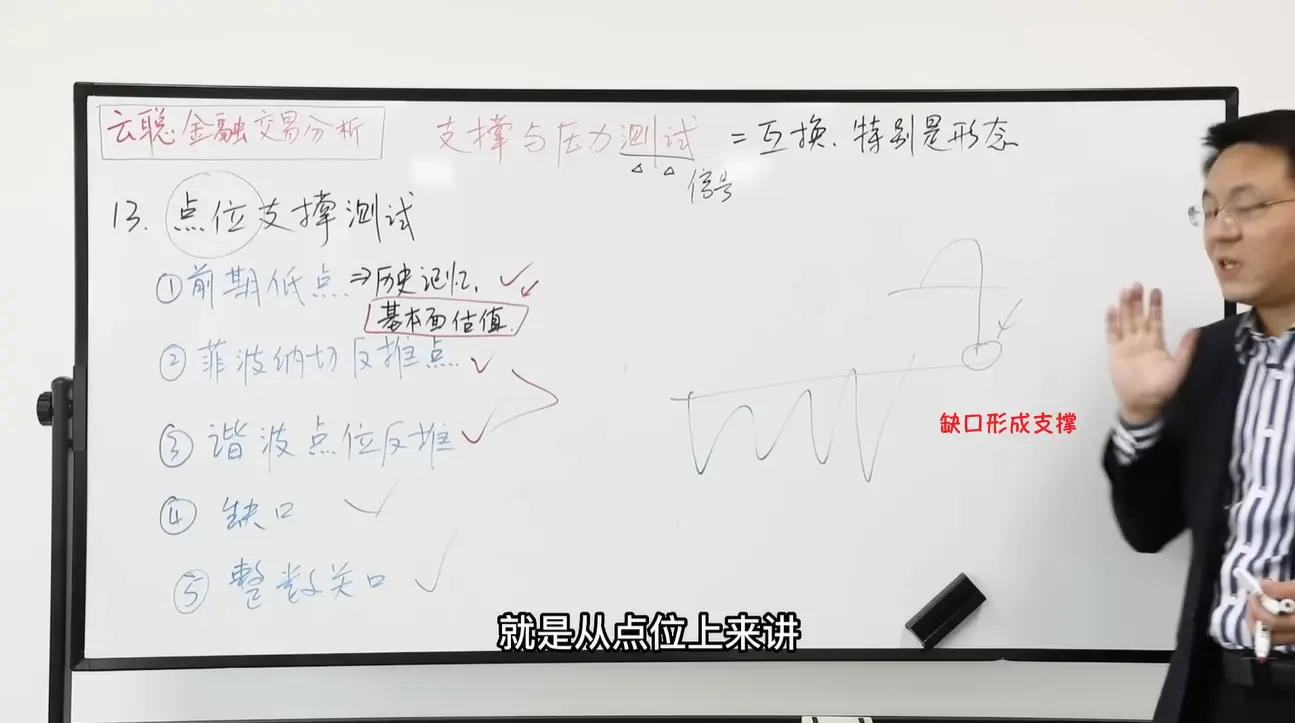 云聪金融交易分析
支撑与压力测试 = 互换. 特别是形态
信号
13. 点位支撑测试
①前期低点 ⇒历史记忆.
基本面估值.
②菲波纳切反推点.
③谐波点位反推
缺口形成支撑
④缺口
⑤整数关口
就是从点位上来讲